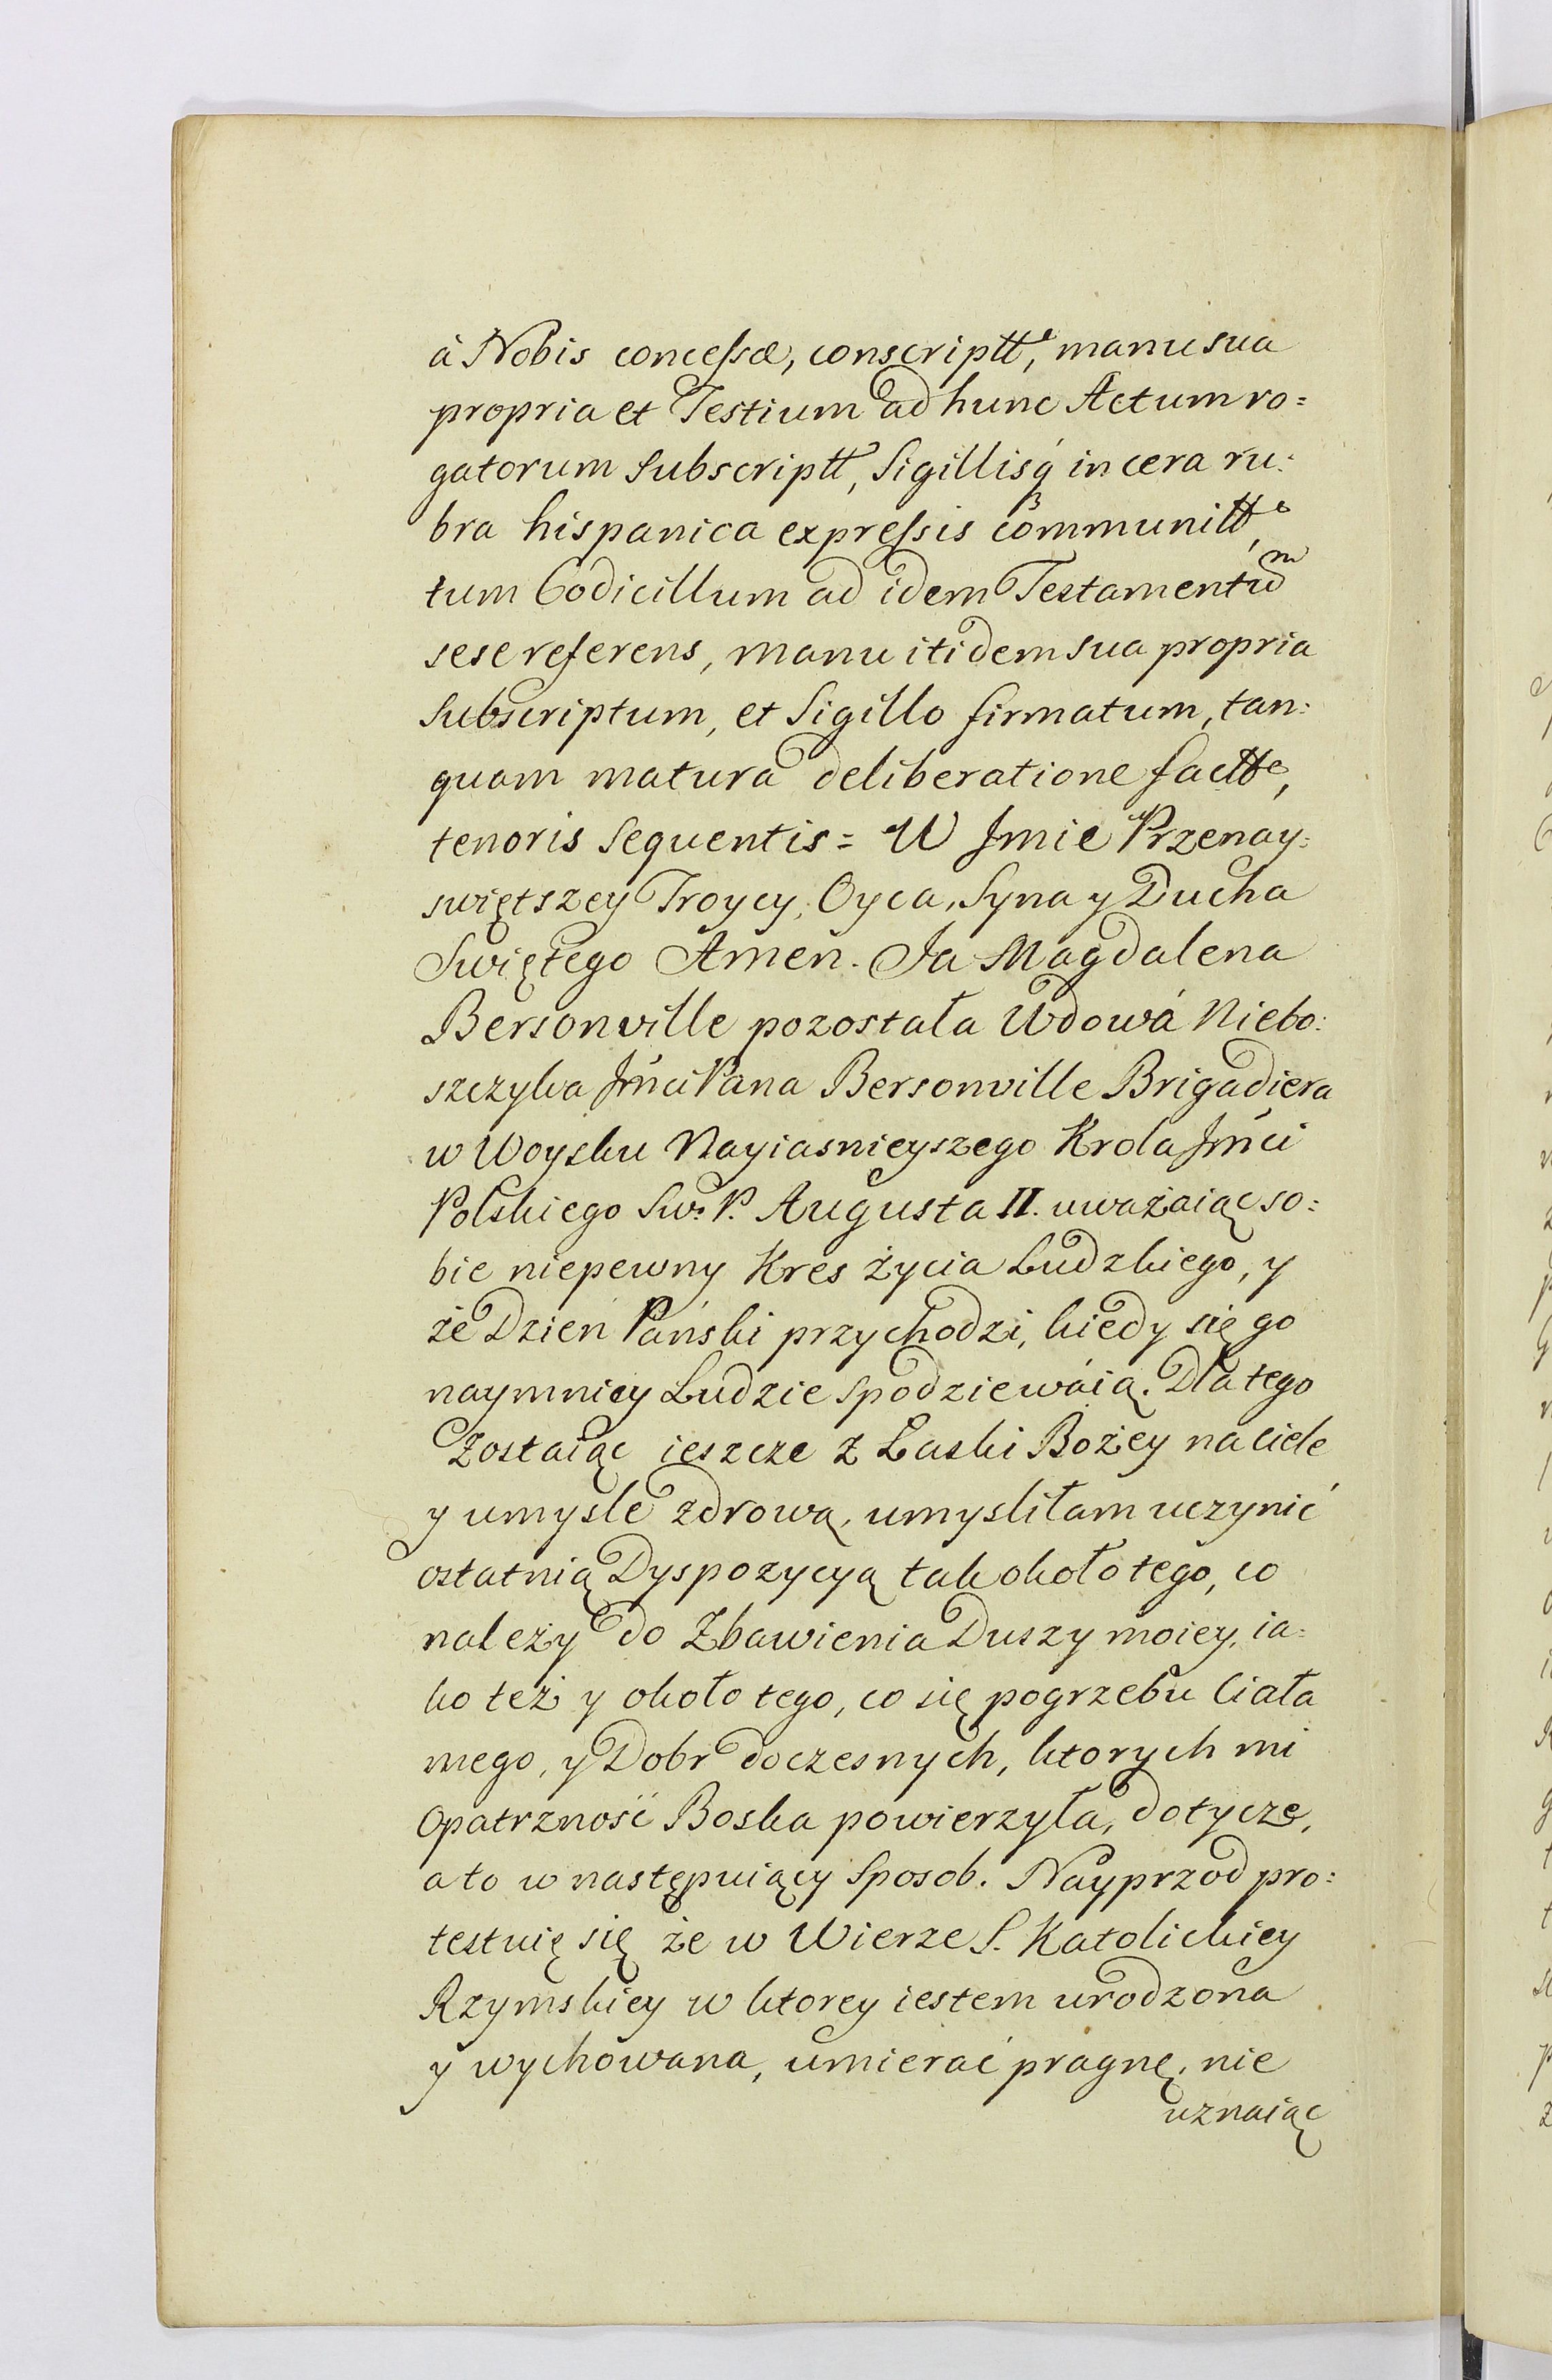 à Nobis concessæ, conscriptt͛, manu sua
propria et Testium ad hunc Actum ro=
gatorum subscriptt, Sigillisq́ in cera ru:
bra hispanica expressis communitt͛,
tum Codicillum ad idem Testamentum
sese referens, manu itidem sua propria
subscriptum, et Sigillo firmatum, tan:
quam matura deliberatione factte,
tenoris sequentis = W Jmie Przenay:
swiętszey Troycy, Oyca, Syna y Ducha
Swiętego Amen. Ja Magdalena
Bersonville pozostała Wdowá Niebo:
szczyka Jmći Pana Bersonville Brigadiera
w Woysku Nayiasnieyszego Krola Jmći
Polskiego Sw. P. Augusta II. uważaiąc so:
bie niepewny Kres życia Ludzkiego, y
że Dzień Pański przychodzi, kiedy się go
naymniey Ludzie spodziewáią. Dla tego
Zostaiąc ieszcze z Łaski Bożey na ciele
y umysle zdrową, umysliłam uczynić
ostatnią Dyspozycyą tak około tego, co
należy do Zbawienia Duszy moiey, ia=
ko też y około tego, co się pogrzebu Ciała
mego, y Dobr doczesnych, ktorych mi
Opatrzność Boska powierzyła, dotycze,
a to w następuiący sposob. Nayprzod pro:
testuię się że w Wierze S. Katolickiey
Rzymskiey w ktorey iestem urodzona
y wychowana, umierać pragnę, nie
uznaiąc